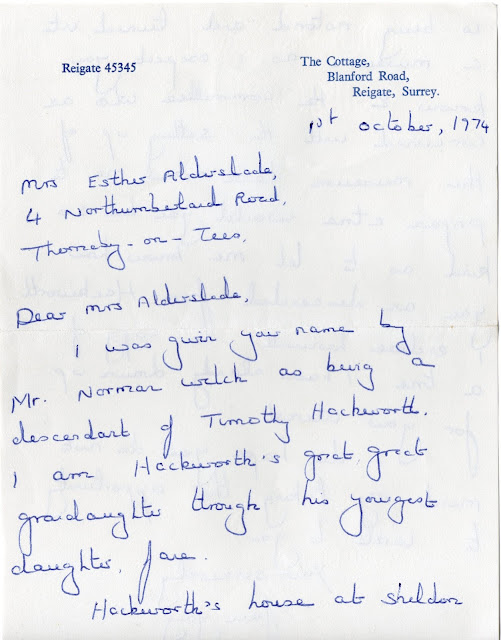 Reigate 45345
The Cottage,
Blanford Road,
Reigate, Surrey.
1st October, 1974
Mrs Esther Alderslade,
4 Northumberland Road,
Thornaby-on-Tees.
Dear Mrs Alderslade,
I was given your name by
Mr. Norman Welch as being a
descendant of Timothy Hackworth.
I am Hackworth's great, great
grandaughter through his youngest
daughter, Jane.
Hackworth's house at Shildon